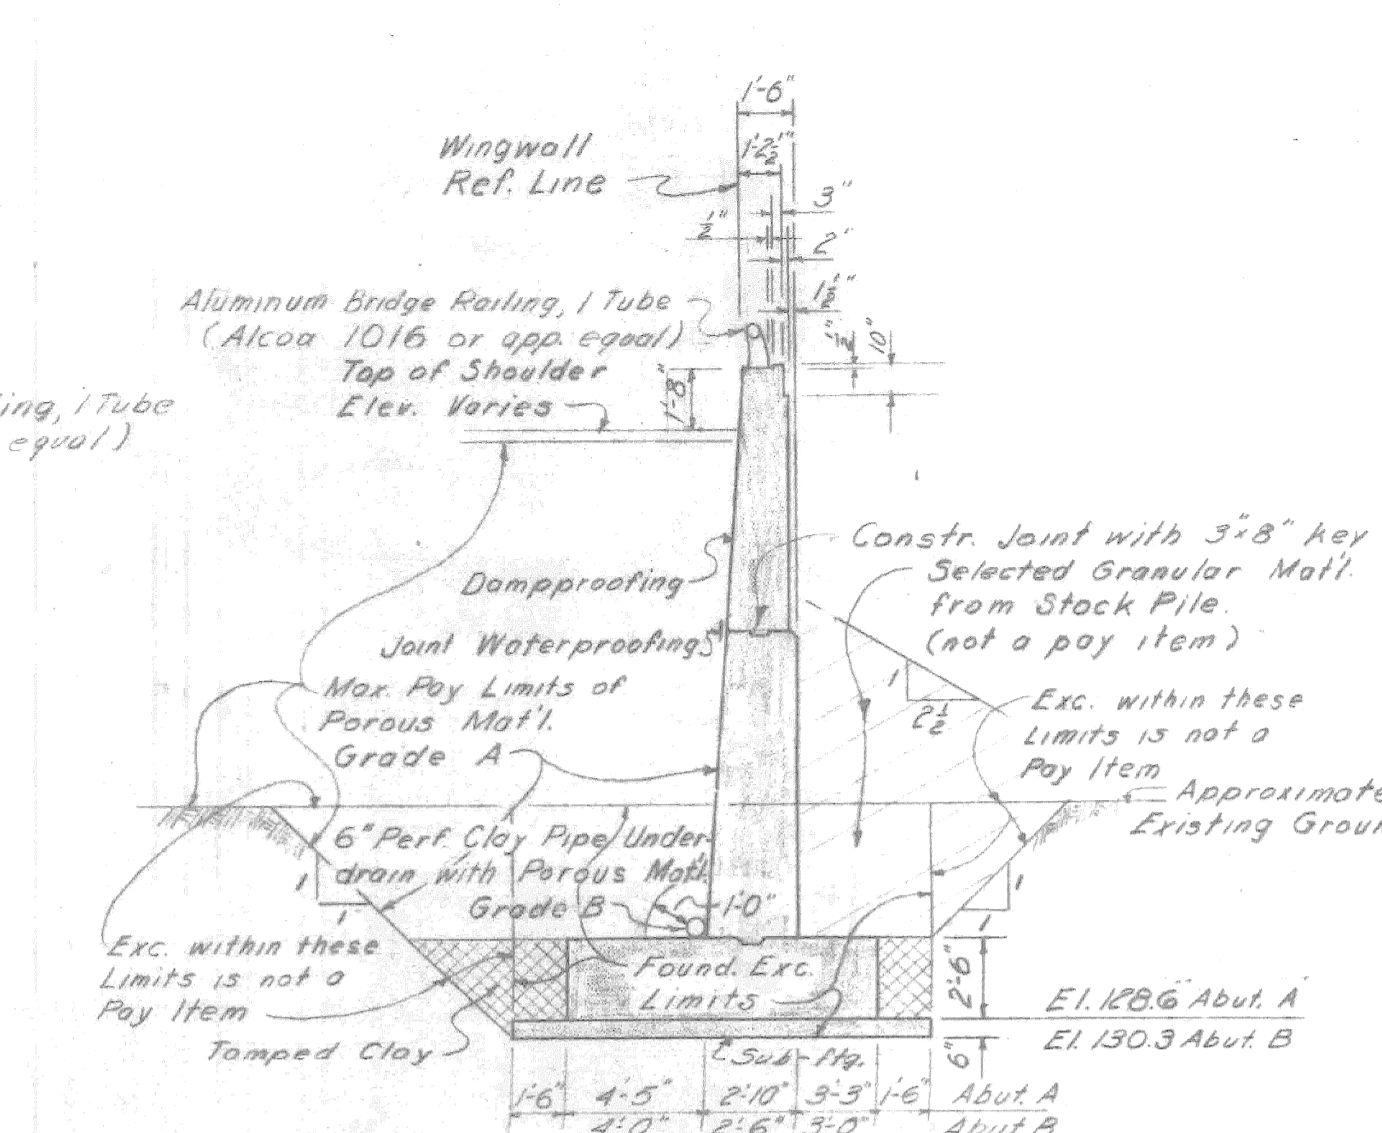 1'-6"
1'-2½"
Wingwall
Ref. Line
3"
½"
2"
1½"
Aluminum Bridge Railing, 1 Tube
(Alcoa 1016 or app. equal)
½"
10"
Top of Shoulder
Elev. Varies
1'-8"
ing, 1 Tube
equal)
Constr. Joint with 3"x8" key
Selected Granular Mat'l.
from Stock Pile.
(not a pay item)
Dampproofing
Joint Waterproofing
Max. Pay Limits of
Porous Mat'l.
Grade A
1
2½
Exc. within these
Limits is not a
Pay Item
Approximate
Existing Groun
6" Perf. Clay Pipe Under-
drain with Porous Mat'l.
Grade B
1'-0"
1
1
1
1
Exc. within these
Limits is not a
Pay Item
Found. Exc.
Limits
2'-6"
El. 128.6 Abut. A
El. 130.3 Abut. B
6"
Tamped Clay
Sub-ftg.
1'-6" 4'-5" 2'-10" 3'-3" 1'-6" Abut. A
4'-0" 2'-6" 3'-0" Abut. B